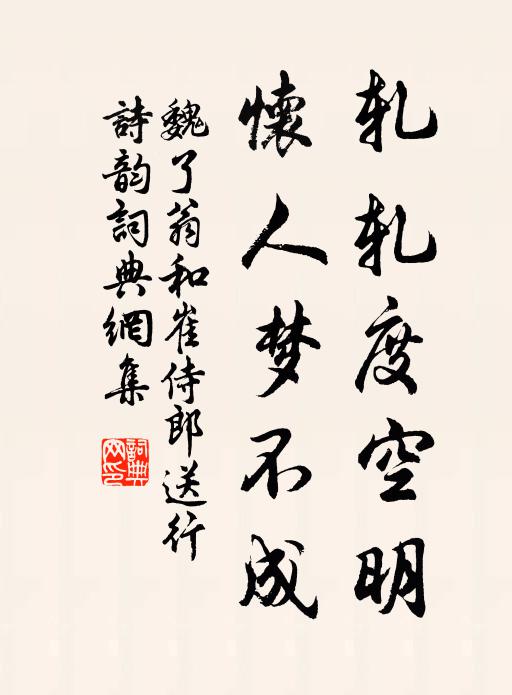 轧轧度空明
懷人梦不成
魏了翁和崔侍郎送行
詩韵詞典網集
詞典网印